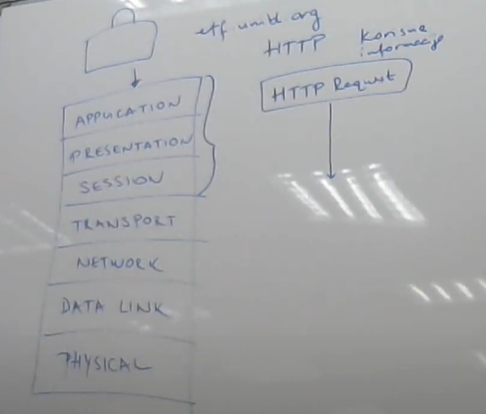 etf.unibl.org
HTTP
Korisne
informacije
HTTP Request
APPLICATION
PRESENTATION
SESSION
TRANSPORT
NETWORK
DATA LINK
PHYSICAL